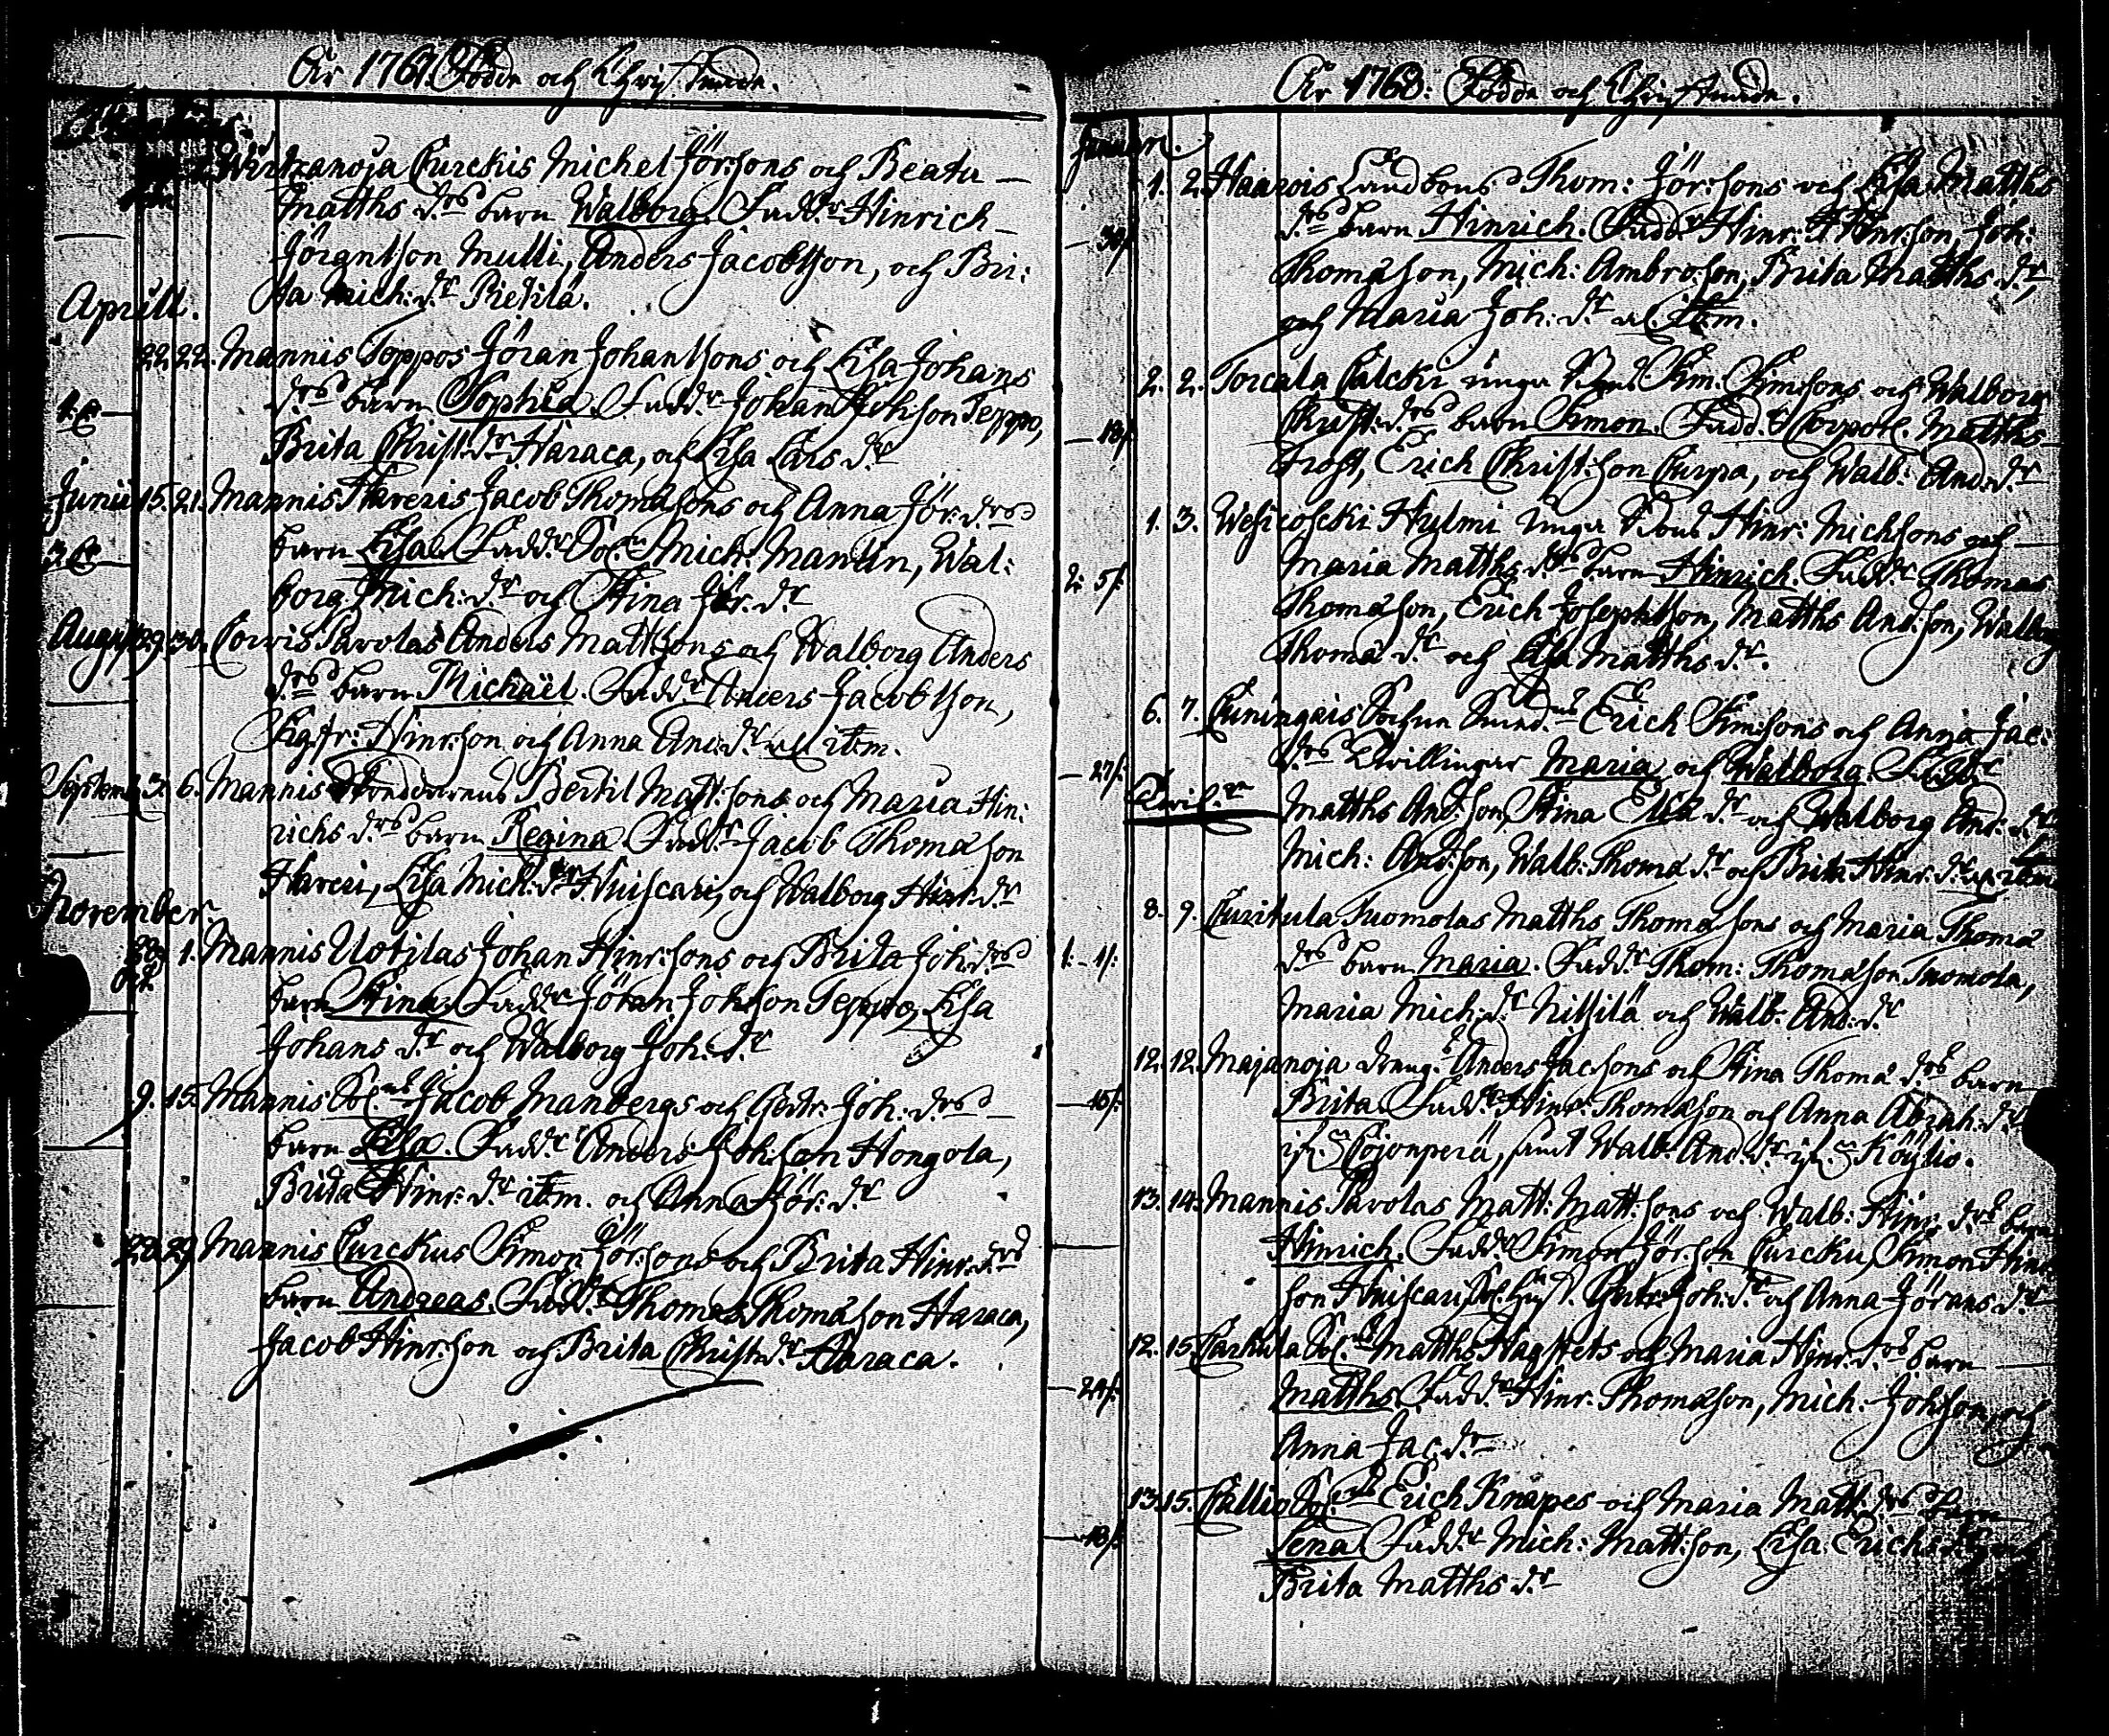 År 1767. Födde och Christnade.
Wirtzanoja Curckis Michel Jör:sons och Beata
Matths d:rs barn Walborg. Fadd:r Hinrich
Jörantson Mulli, Anders Jacobsson, och Bri:
ta Mich: d:r Pietilä.
Aprill.
22. 22. Mannis Teppos Jöran Johantsons och Lisa Johans
d:rs barn Sophia. Fadd:r Johan Johson Teppo,
Brita Christ: d:r Haraca, och Lisa Lars d:r
Junii 15. 21. Mannis Hareris Jacob Thomæsons och Anna Jör: d:rs
barn Lisa. Fadd:r Sol:n Mich: Manelin, Wal:
borg Mich: d:r och Stina Jör: d:r
August 29. 30. Corvis Pavolas Anders Mattsons och Walborg Anders
d:rs barn Michaël. Fadd:r Anders Jacobsson,
Sigfr: Hinr:son och Anna And: d:r al. item.
Septemb. 3. 6. Mannis Bertil Matt:sons och Maria Hin:
richs d:rs barn Regina. Fadd:r Jacob Thomæson
Hareri, Lisa Mich: d:r Huiscari, och Walborg Hinr: d:r
November
28 Oct. 1. Mannis Uotilas Johan Hinr:sons och Brita Joh: d:rs
barn Stina. Fadd:r Jöran Johson Teppo, Lisa
Johans d:r och Walborg Joh: d:r
9. 15. Mannis Sol:ns Jacob Manbergs och Gertr: Joh: d:rs
barn Lisa. Fadd:r Anders Joh:son Hongola,
Brita Hinr: d:r item. och Anna Jör: d:r
28. 29. Mannis Curckus Simon Jör:sons och Brita Hinr: d:rs
barn Andreas. Fadd:r Thomas Thomæson Haraca,
Jacob Hinr:son och Brita Christ: d:r Haraca.
År 1768: Födde och Christnade.
Januar.
1. 2. Haarois Landbons Thom: Jör:sons och Lisa Matths
d:rs barn Hinrich. Fadd:r Hinr: Hinr:son, Joh:
Thomæson, Mich: Ambro:son, Brita Matths d:r,
och Maria Joh: d:r al. item.
2. 2. Torcala Calcki unga Sim: Sim:sons och Walborg
Christ: d:rs barn Simon. Fadd:r Corporl. Matths
Frost, Erich Christ:son Curpa, och Walb: And: d:r
1. 3. Wesicoscki Hulmi unga Hinr: Michsons och
Maria Matths d:rs barn Hinrich. Fadd:r Thomas
Thomæson, Erich Josephsson, Matths And:son, Walborg
Thomæ d:r och Lisa Matths d:r.
6. 7. Cuningais Erich Sim:sons och Anna Jac:
d:rs Twillingar Maria och Walborg. Fadd:r
Matths And:son, Stina Erichs d:r och Walborg And: d:r
Mich: And:son, Walb: Thomæ d:r och Brita Hinr: d:r al. item
8. 9. Curitula Tuomolas Matths Thomæsons och Maria Thomæ
d:rs barn Maria. Fadd:r Thom: Thomæson Tuomola,
Maria Mich: d:r Nissilä och Walb: And: d:r
12. 12. Majanoja dreng: Anders Jac:sons och Stina Thomæ d:rs barn
Brita. Fadd:r Hinr: Thomæson och Anna Abrah: d:r
ifr. Cojonperä, samt Walb: And: d:r ifr. Köylio.
13. 14. Mannis Pavolas Matt: Matt:sons och Walb: Hinr: d:rs barn
Hinrich. Fadd:r Simon Jör:son Curcku, Simon Hinr
son Huiscari, Sol: Hust. Gertr: Joh: d:r och Anna Jörans d:r
12. 15. Carhula Sol:ns Matths Hagstets och Maria Hinr: d:rs barn
Matths. Fadd:r Hinr: Thomæson, Mich: Johson, och
Anna Jac: d:r
13. 15. Callio Sol:ns Erich Knapes och Maria Matt: d:rs barn
Lena. Fadd:r Mich: Matt:son, Lisa Erichs d:r och
Brita Matths d:r